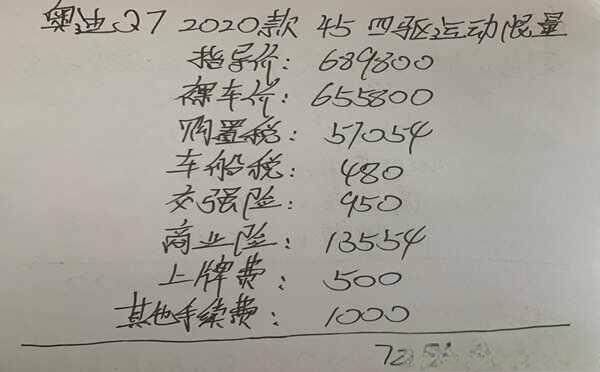 奥迪Q7 2020款 45 四驱运动限量
指导价: 689800
裸车价: 655800
购置税: 57054
车船税: 480
交强险: 950
商业险: 13554
上牌费: 500
其他手续费: 1000